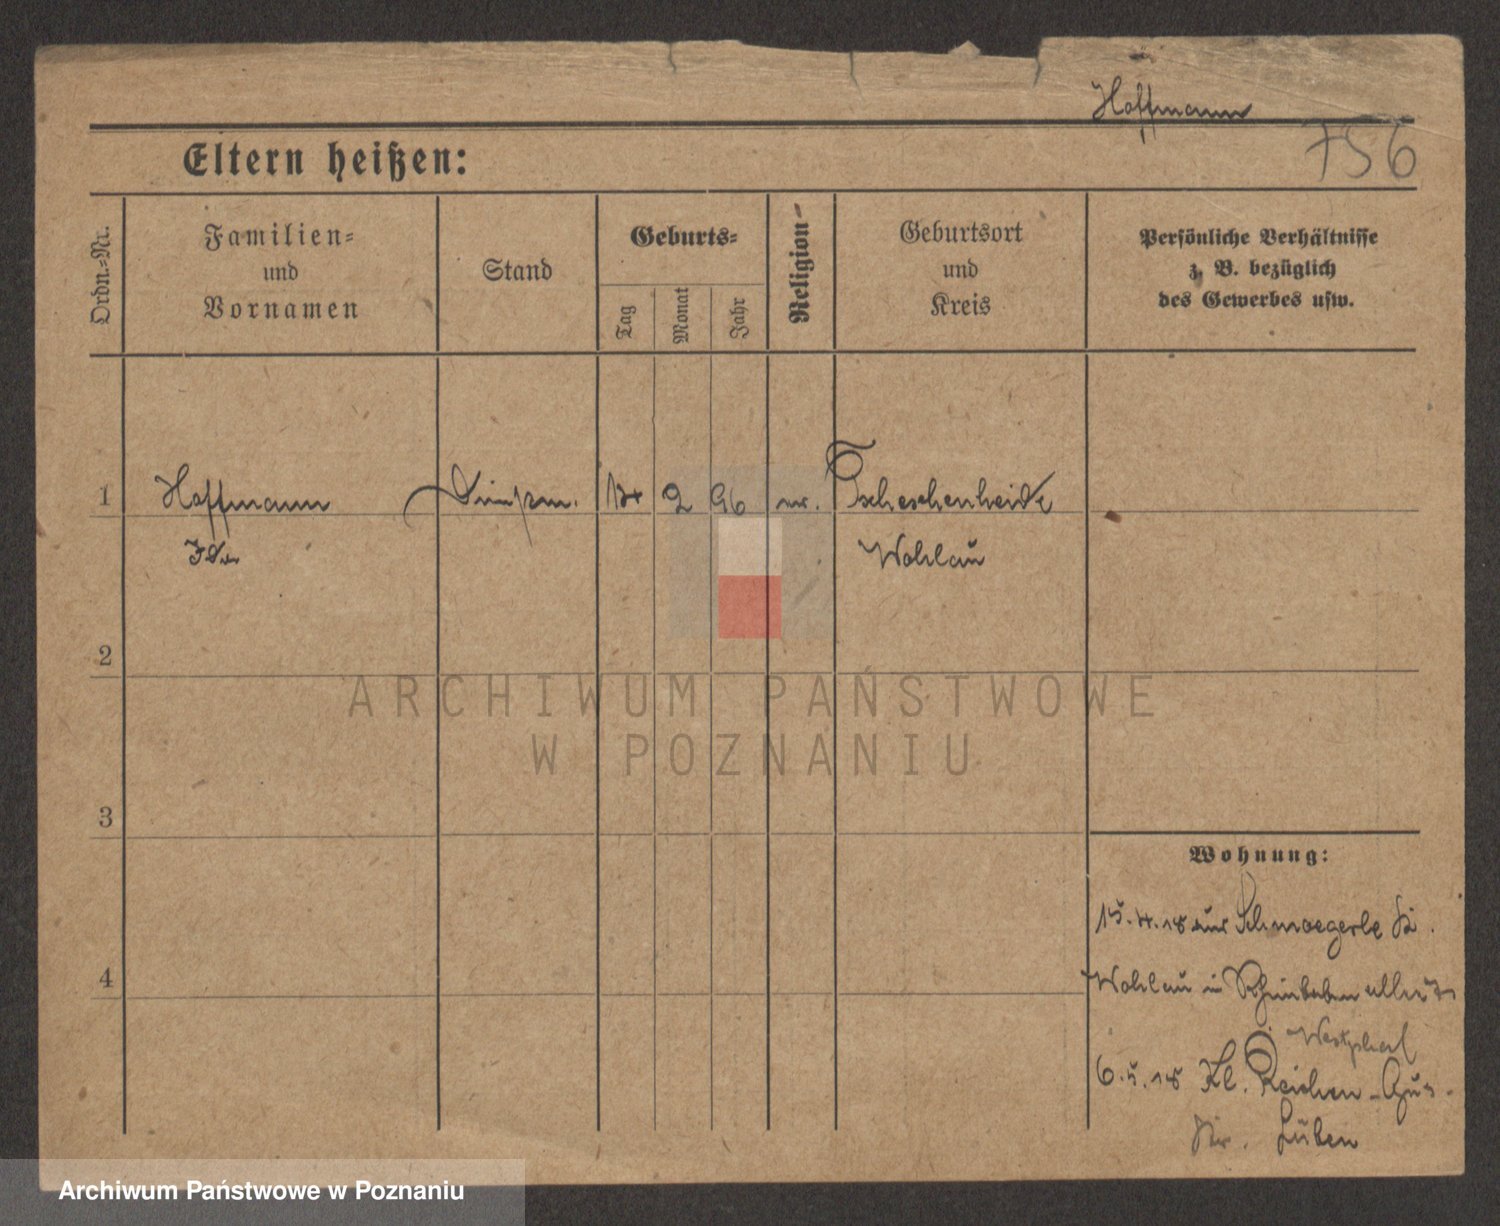 Hoffmann
756
Eltern heißen:
Ordn.-Nr.
Familien-
und
Vornamen
Stand
Geburts-
Tag
Monat
Jahr
Religion-
Geburtsort
und
Kreis
Persönliche Verhältnisse
z. B. bezüglich
des Gewerbes usw.
1 Hoffmann 2 96 Tscheschenheide
Ida Wohlau
2
ARCHIWUM PAŃSTWOWE
W POZNANIU
3
Wohnung:
15.4.18 aus Schmoegerle Kr.
4
Wohlau in
Westphal
6.5.18 Kl. Reichen-
Kr. Lüben
Archiwum Państwowe w Poznaniu